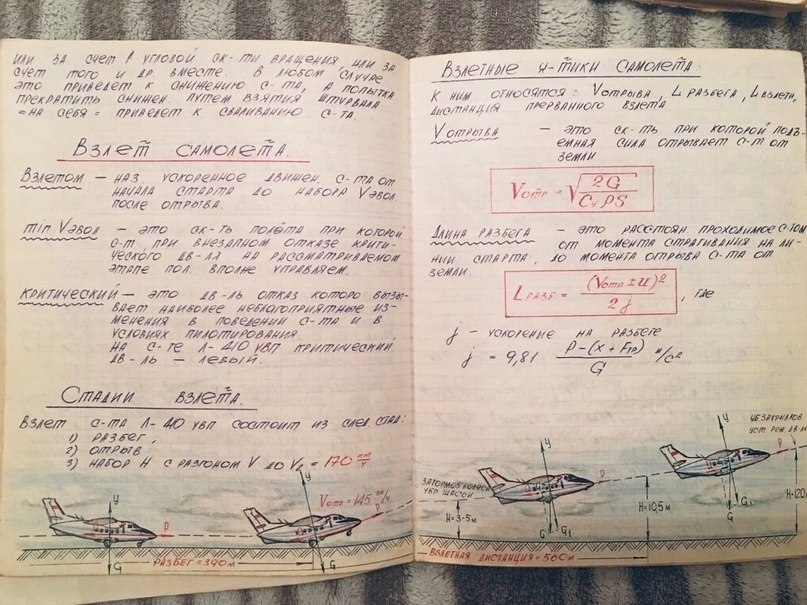 или за счет ↑ угловой ск-ти вращения или за
счет того и др. вместе. В любом случае
это приведет к снижению с-та, а попытка
прекратить снижен. путем взятия штурвала
"на себя" приведет к сваливанию с-та.
Взлет самолета.
Взлетом — наз. ускоренное движен. с-та от
начала старта до набора Vэвол.
после отрыва.
min Vэвол — это ск-ть полёта при которой
с-т при внезапном отказе крити-
ческого дв-ля на рассматриваемом
этапе пол. вполне управляем.
Критический — это дв-ль отказ которо вызы-
вает наиболее неблагоприятные из-
менения в поведении с-та и в
условиях пилотирования.
На с-те Л-410 увп критический
дв-ль — левый.
Стадии взлета.
Взлет с-та Л-410 увп состоит из след. стад:
1) разбег,
2) отрыв
3) набор H с разгоном V до V₂ = 170 км/ч
y
P
G
Разбег = 390м
y
Vотр = 145 км/ч
P
G
Взлетные х-тики самолета.
К ним относятся: Vотрыва, L разбега, L взлетн,
дистанция прерванного взлета
V отрыва — это ск-ть при которой подъ-
емная сила отрывает с-т от
земли
Vотр = √2G/CyρS
Длина разбега — это расстоян. проходимое с-том
от момента страгивания на ли-
нии старта, до момента отрыва с-та от
земли.
Lразб = (Vотр ± u)²/2j, где
j — ускорение на разбеге
j = 9,81 P-(x+Fтр)/G м/с²
Затормоз. колеса
убр. шасси
H=3-5м
y
P
G G₁
H=10,5м
уб. закрылков
уст. реж. дв.
y
P
G G₁
Взлетная дистанция = 560м